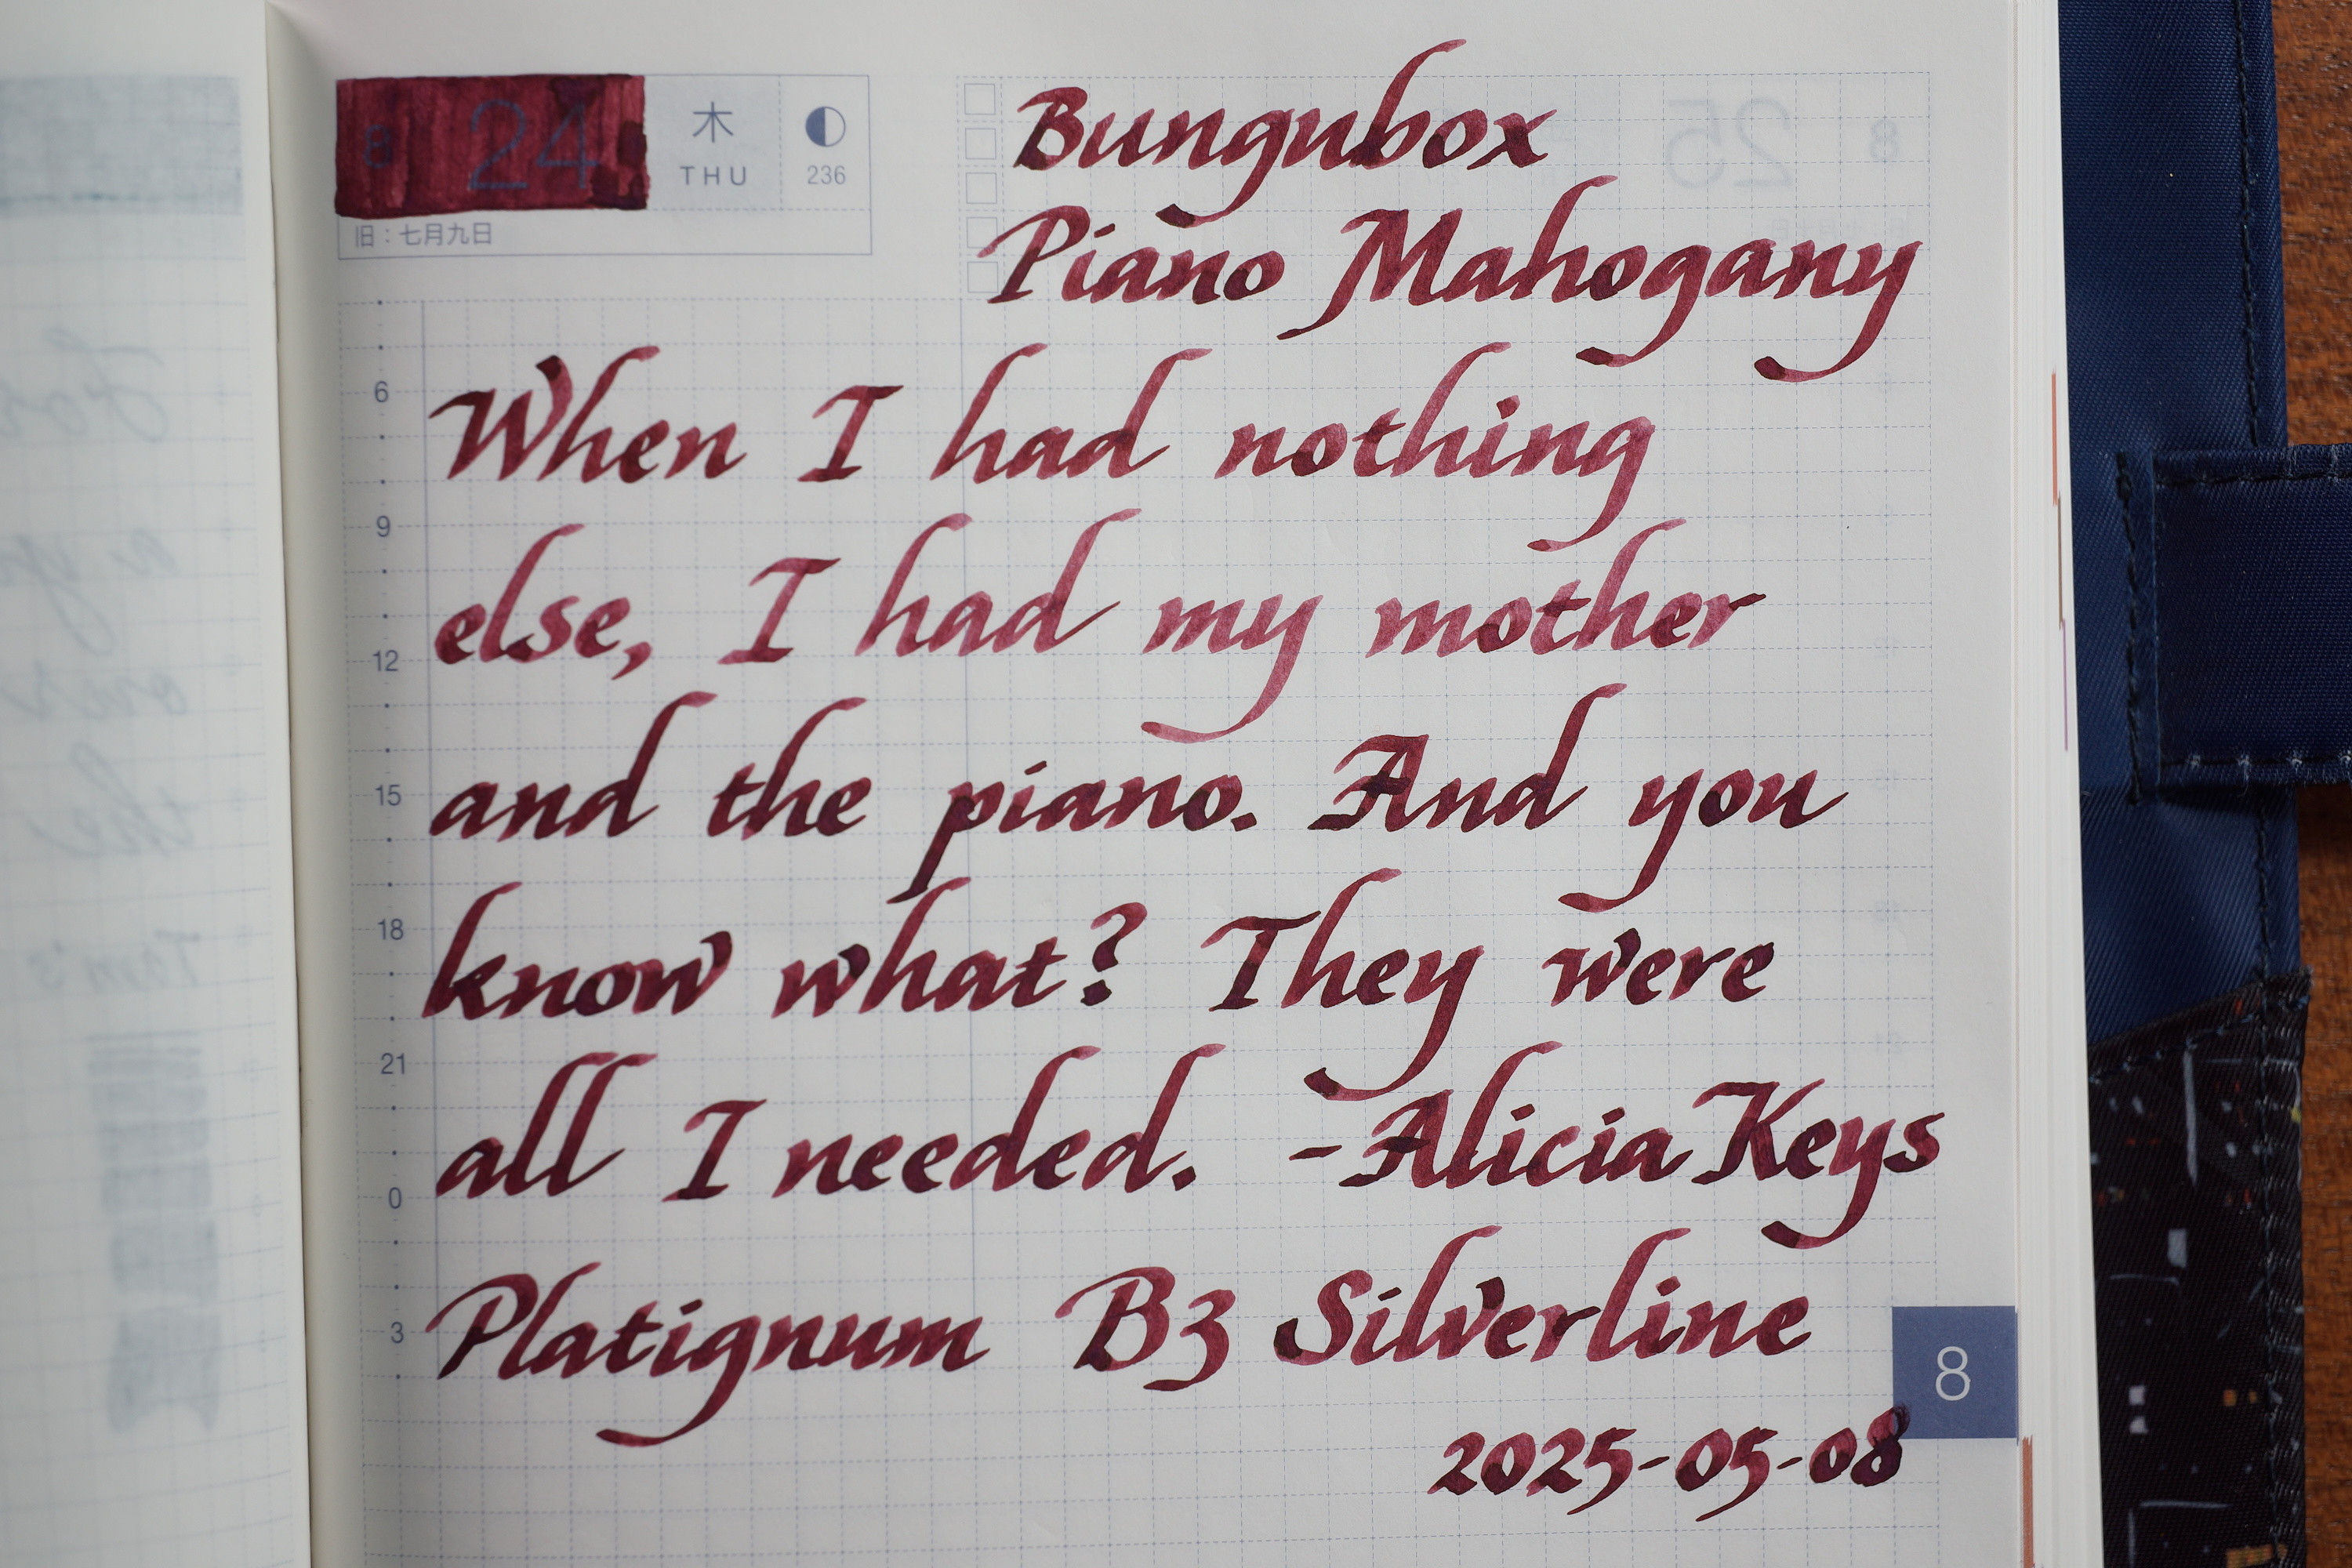 8 24 木 THU 236
旧：七月九日
Bungubox
Piano Mahogany
6
When I had nothing
9
else, I had my mother
12
and the piano. And you
15
know what? They were
18
all I needed. -Alicia Keys
21
0
Platignum B3 Silverline
3
8
2025-05-08